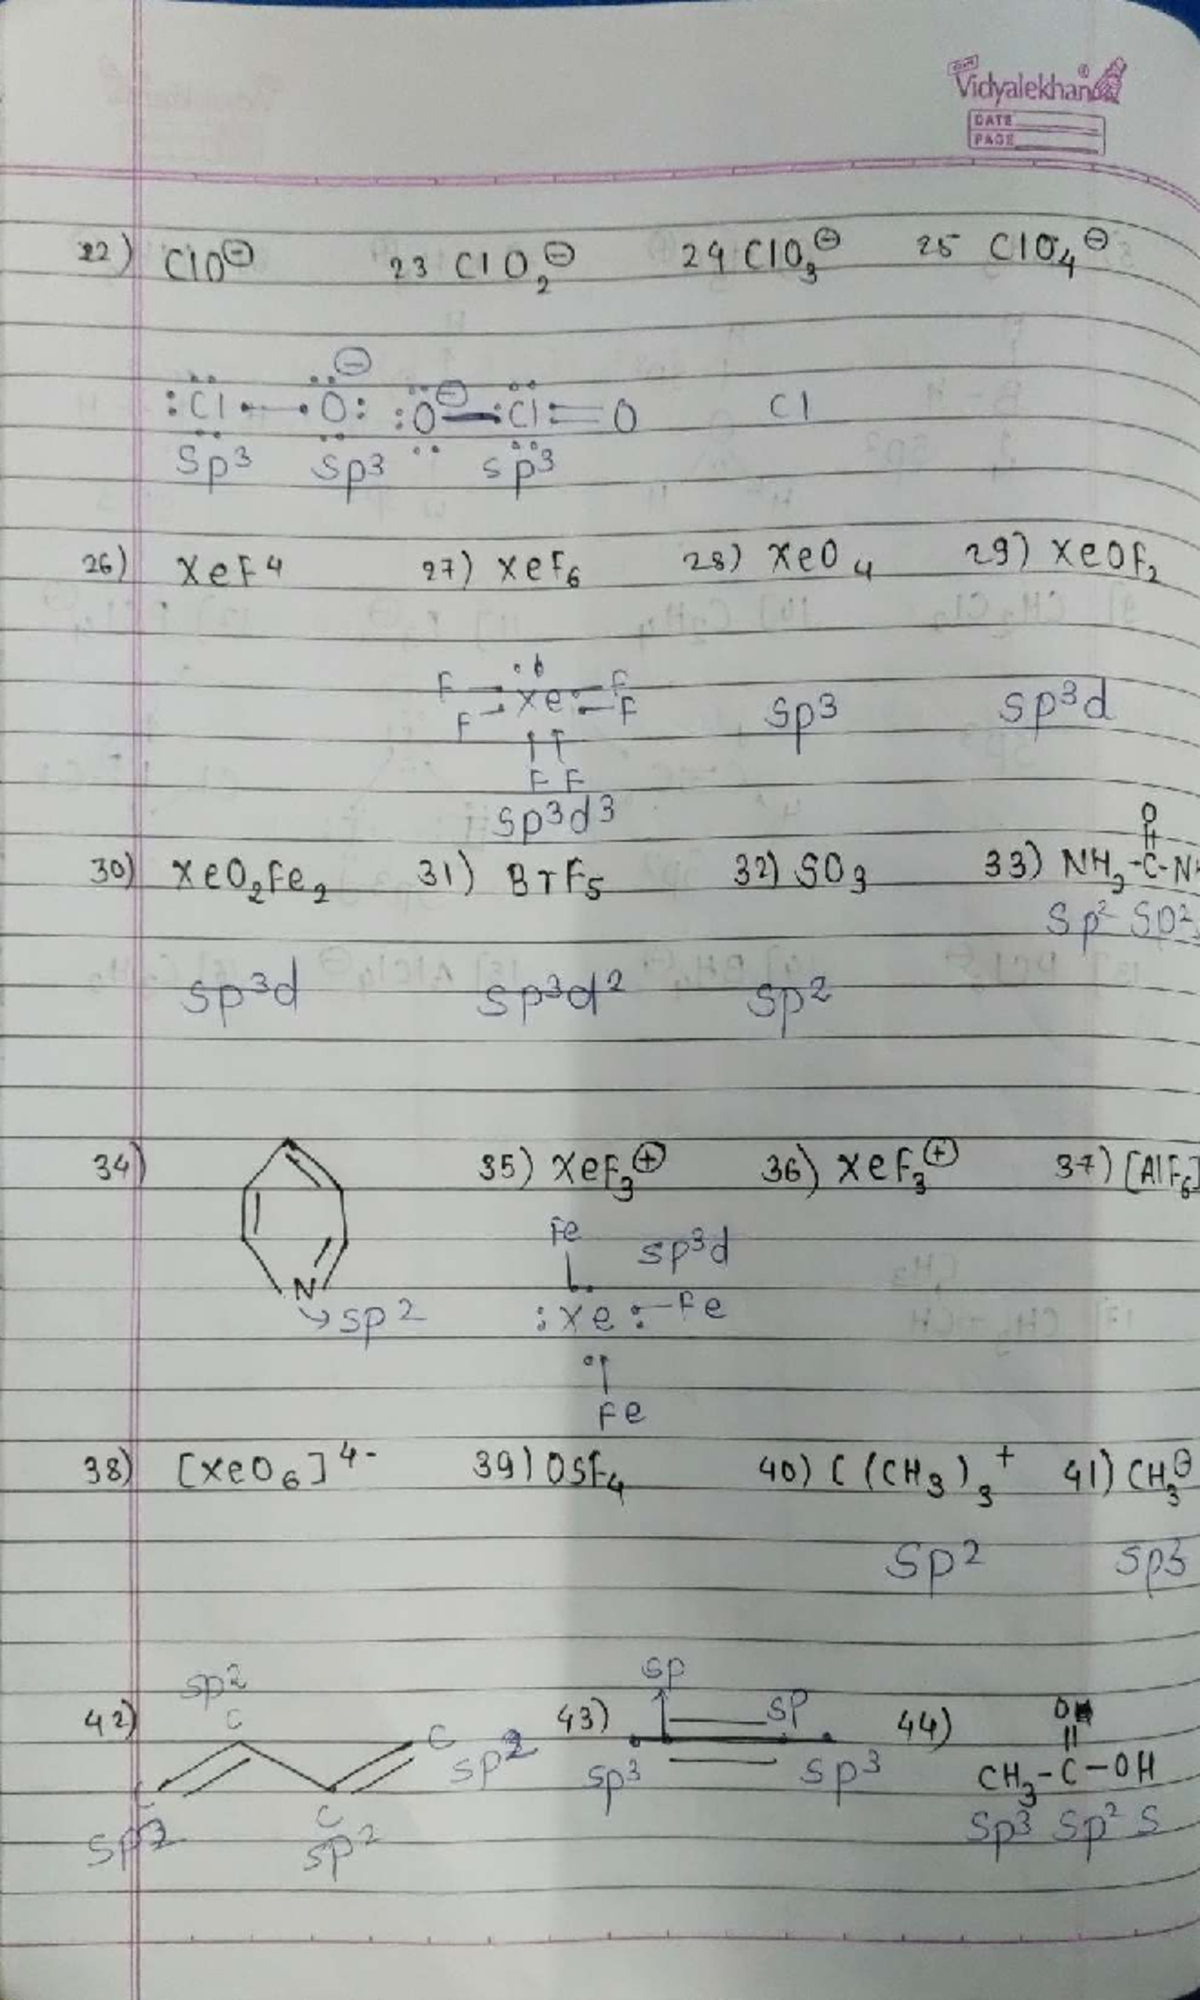 Vidyalekhan
DATE
PAGE
22) ClO⊖ 23 ClO₂⊖ 24 ClO₃⊖ 25 ClO₄⊖
⊖
:Cl — O: :O⊖ — Cl = O Cl
Sp³ Sp³ sp³
26) XeF4 27) XeF₆ 28) XeO₄ 29) XeOF₂
F Xe F Sp³ Sp³d
F F
F F
Sp³d³
O
30) XeO₂Fe₂ 31) BrF₅ 32) SO₃ 33) NH₂-C-N
Sp² Sp²
Sp³d Sp³d² Sp²
34) 35) XeF₃⊕ 36) XeF₃⊕ 37) [AlF₆]
Fe Sp³d
N :Xe:-Fe
→sp²
Fe
38) [XeO₆]⁴⁻ 39) OsF₄ 40) C(CH₃)₃⁺ 41) CH₃⊖
Sp² Sp³
sp² sp
42) C C sp² 43) sp 44) OH
C sp³ sp³ CH₃-C-OH
sp² C Sp³ Sp² S
sp²